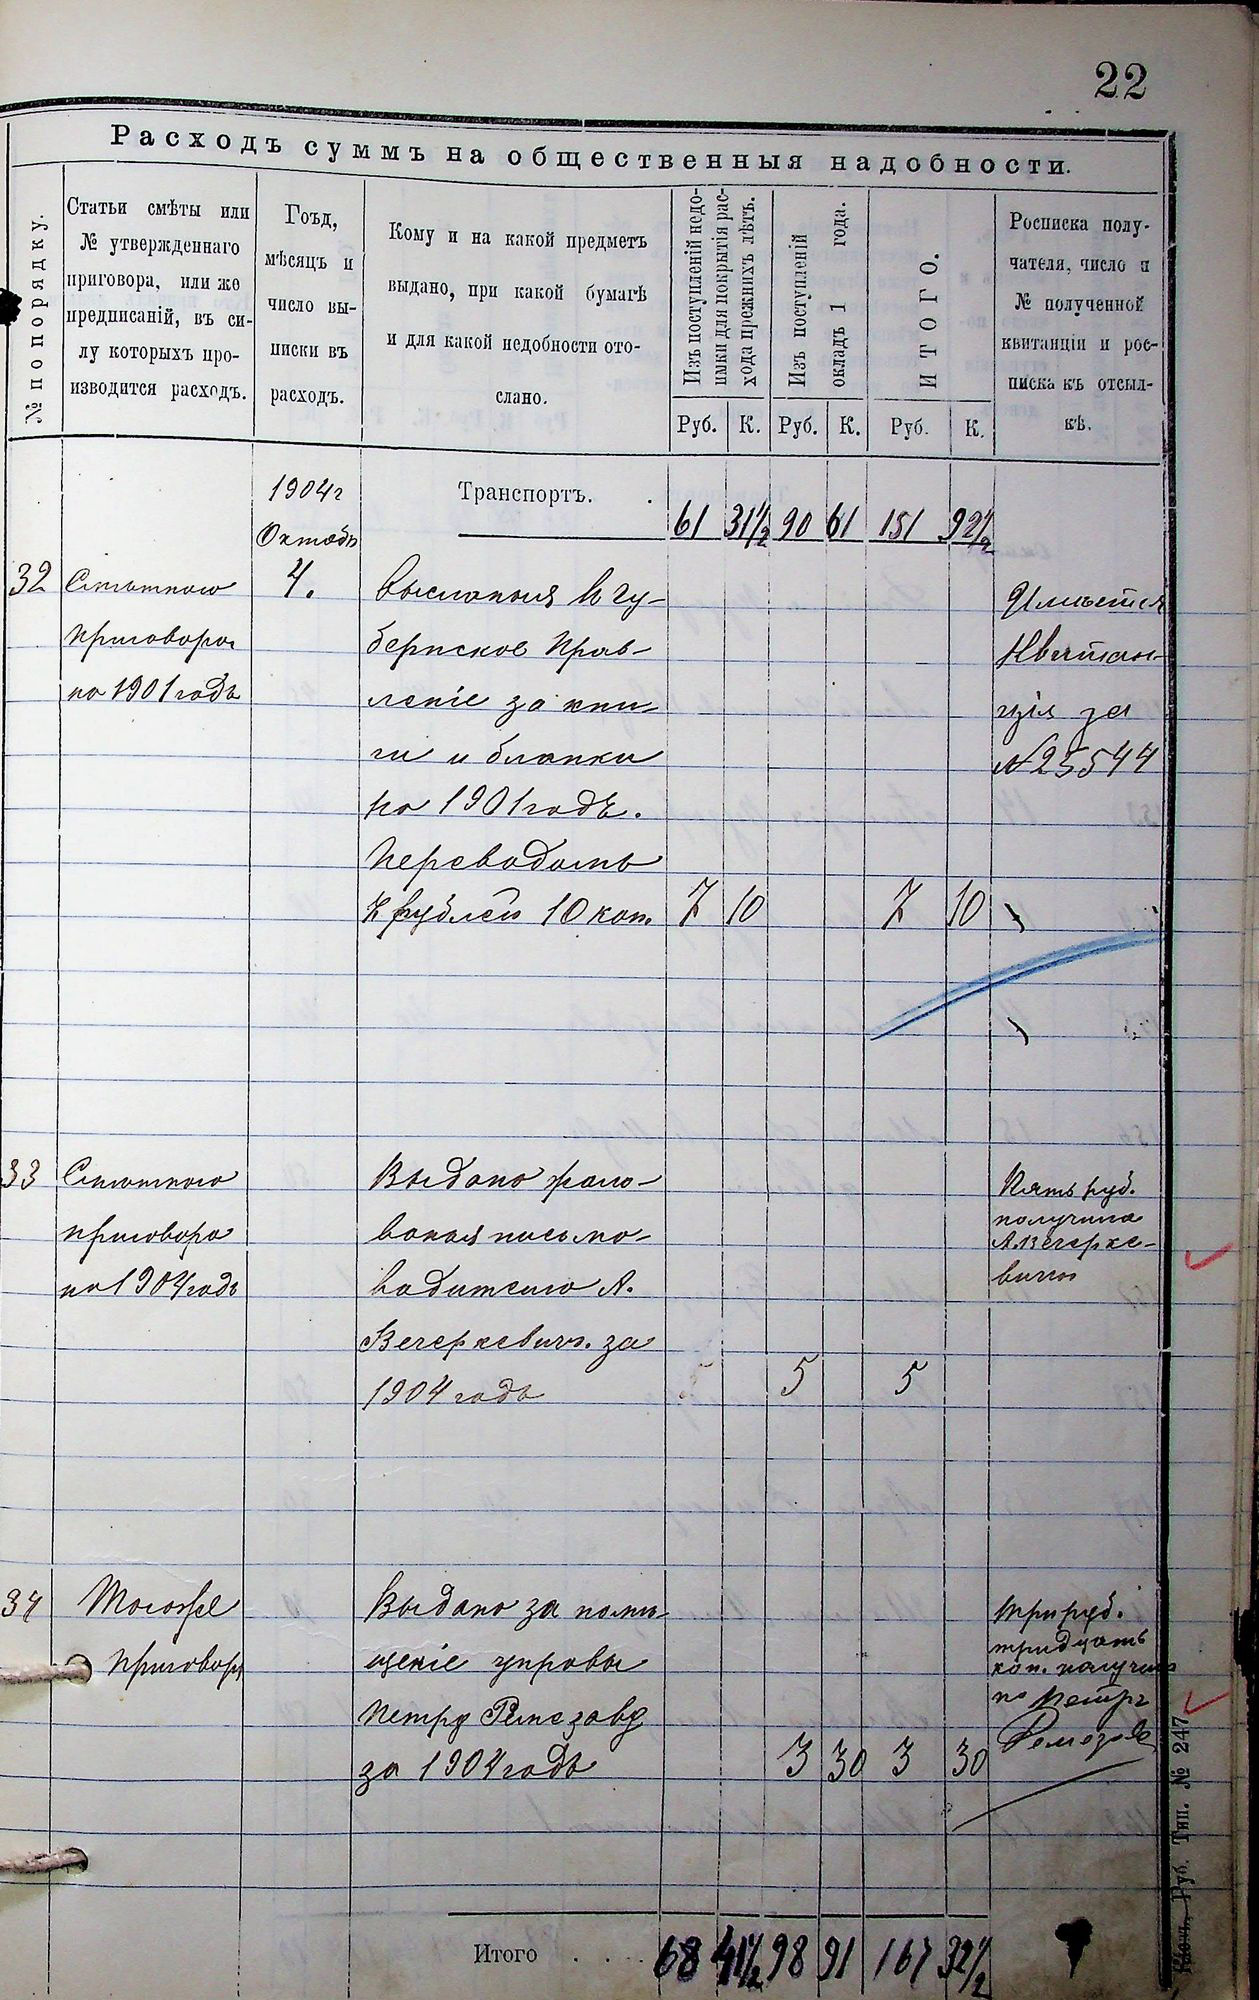 22
Расходъ суммъ на общественныя надобности.
№ по порядку.
Статьи смѣты или
№ утвержденнаго
приговора, или же
предписаній, въ си-
лу которыхъ про-
изводится расходъ.
Гоъд,
мѣсяцъ и
число вы-
писки въ
расходъ.
Кому и на какой предметъ
выдано, при какой бумагѣ
и для какой недобности ото-
слано.
Изъ поступленій недо-
имки для покрытія рас-
хода прежнихъ лѣтъ.
Изъ поступленій
окладъ 1 года.
ИТОГО.
Росписка полу-
чателя, число и
№ полученной
квитанціи и рос-
писка къ отсыл-
кѣ.
Руб. К. Руб. К. Руб. К.
1904г
Октябь
Транспортъ.
61 31½ 90 61 151 92½
32 Сметного
приговора
на 1901 годъ
4.
Высланыя в Гу-
бернское Прав-
леніе за кни-
ги и бланки
на 1901 годъ.
Переводомъ
7 рублей 10 коп. 7 10 7 10
Имѣется
Квитан-
ція за
№ 25544
33 Сметного
приговора
на 1904 годъ
Выдано жало-
ванья письмо-
водителю А.
Вечеркевич. за
1904 годъ 5 5
Пять руб.
получила
А. Вечерке-
вичъ
34 Тогоже
приговора
Выдано за поми-
щеніе управы
Петру Ремезову
за 1904 годъ 3 30 3 30
Три руб.
тридцать
коп. получил
Петръ
Ремезовъ
Итого 68 41½ 98 91 167 32½
Руб. Тип. № 247